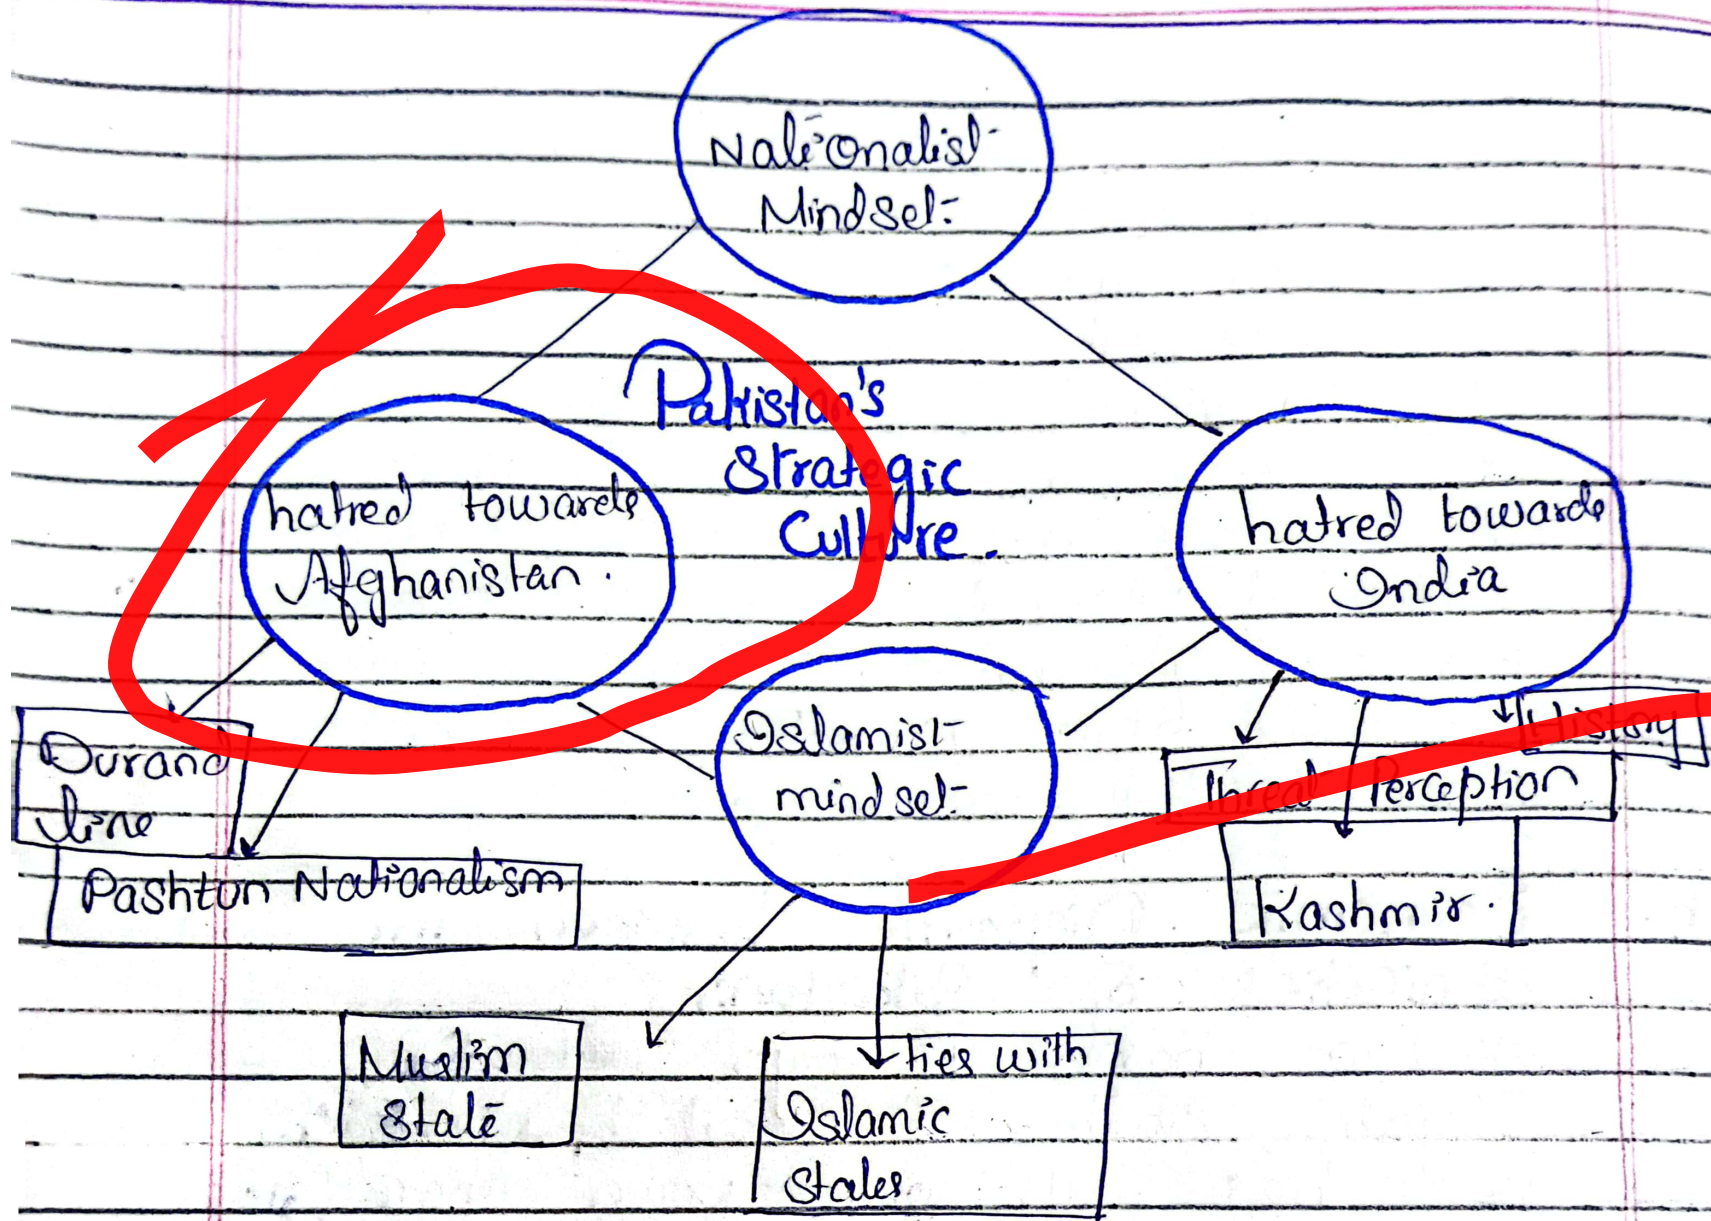 Nationalist
Mindset
Pakistan's
Strategic
Culture.
hatred towards
Afghanistan.
hatred towards
India
Islamist
mindset
Durand
line
Pashtun Nationalism
History
Threat Perception
Kashmir.
Muslim
State
ties with
Islamic
States